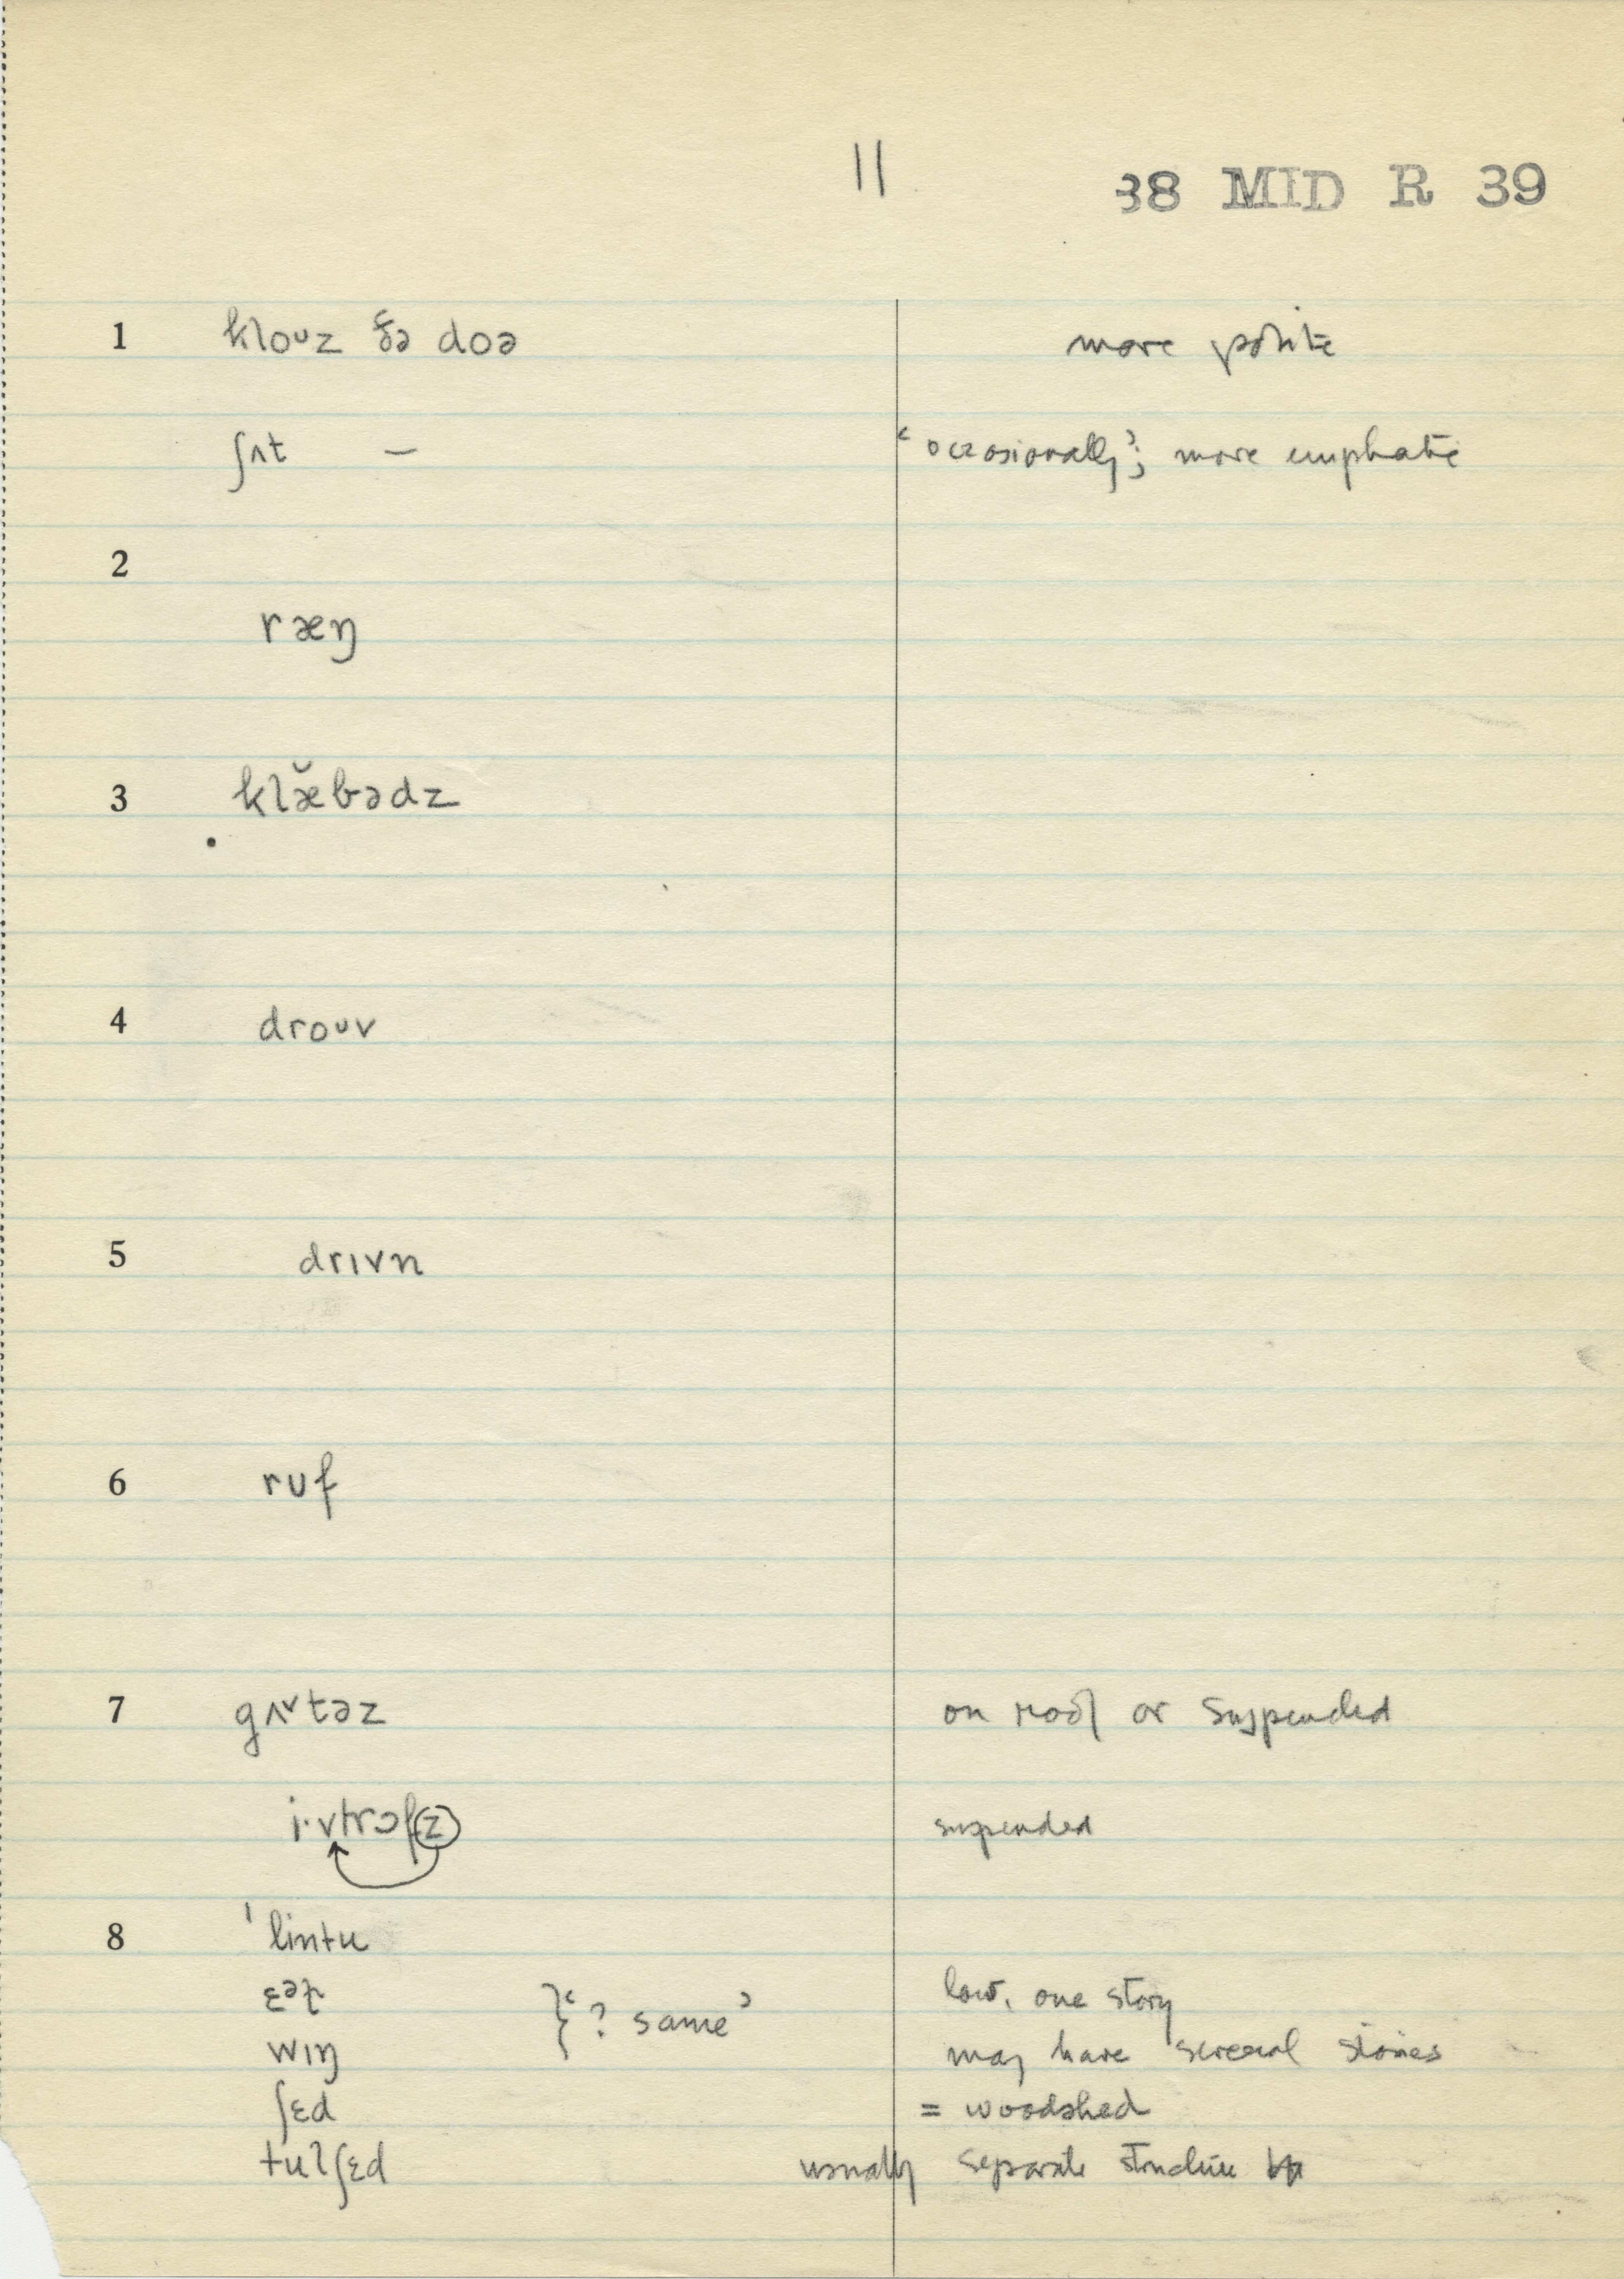 11
38 MID R 39
1 kloᴜz ðə doə more polite
ʃʌt — ‘occasionally’; more emphatic
2
ræŋ
3 klæ̆bədz
4 droᴜv
5 drɪvn
6 rᴜf
7 gʌ˅təz on roof or suspended
i·vtrɔfz suspended
8 ˈlintu
ɛəl low, one story
}‘? same’
wɪŋ may have several stories
ʃɛd = woodshed
tulʃɛd usually separate structure